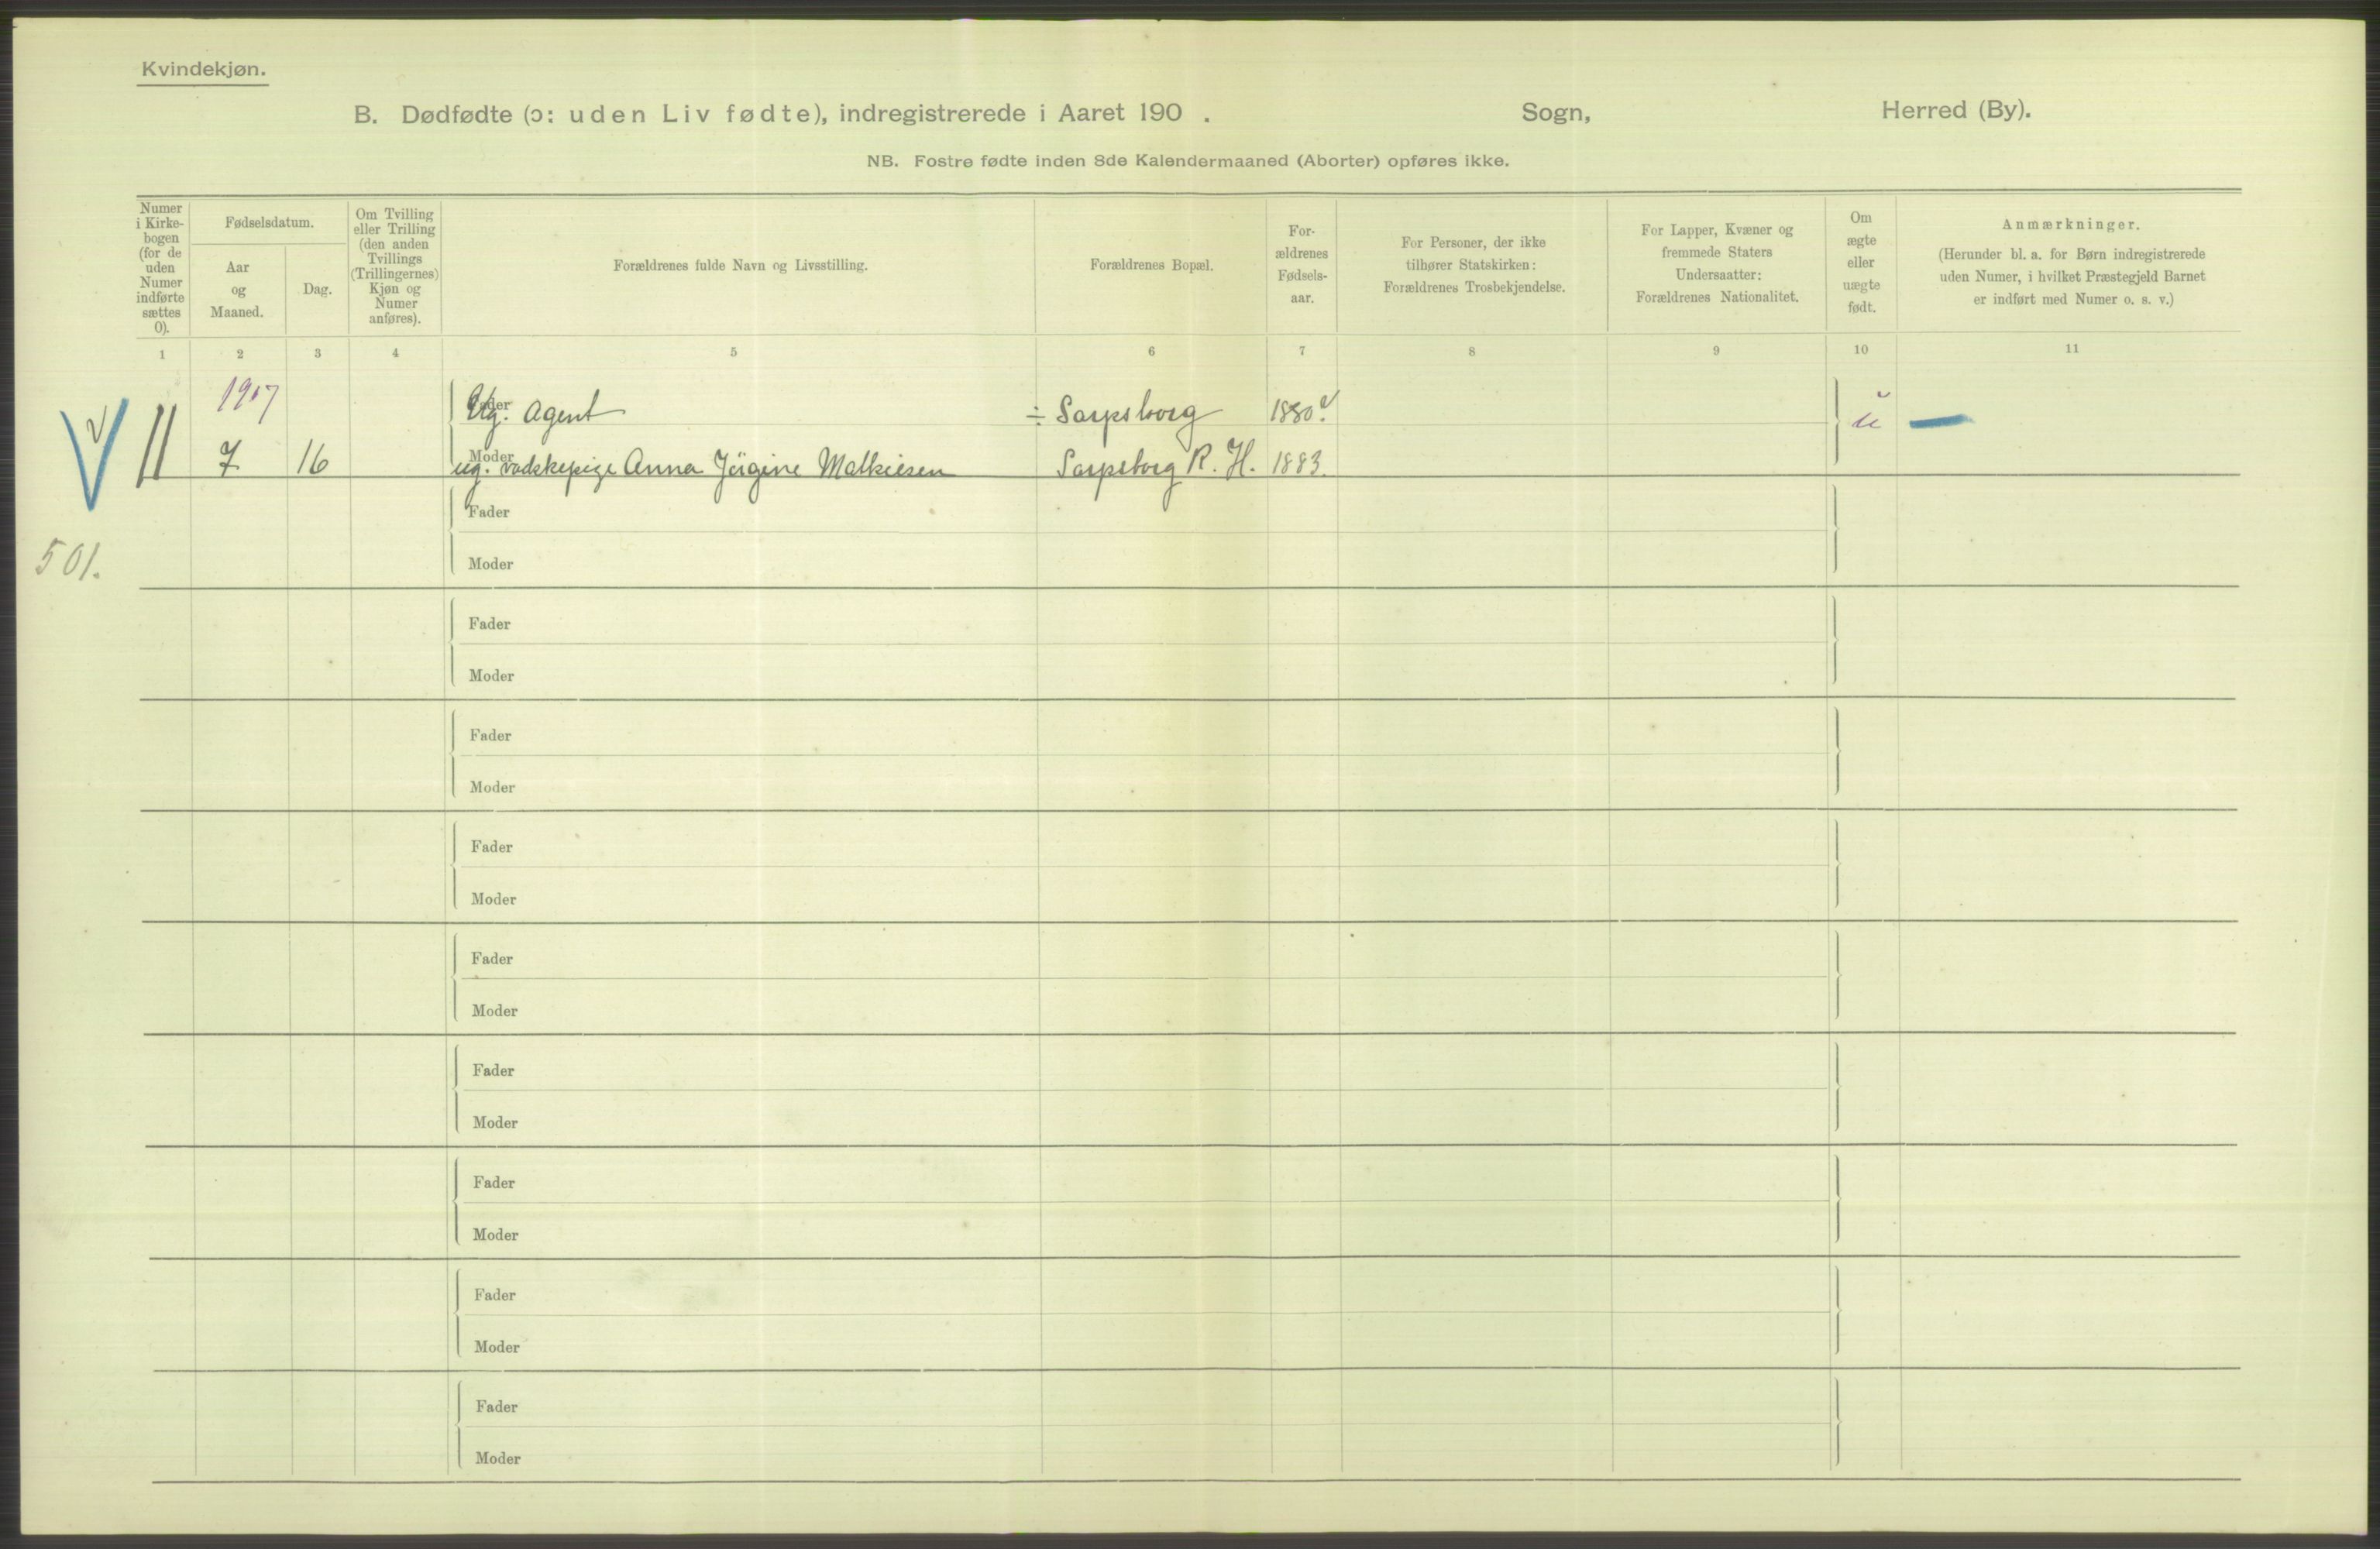 Kvindekjøn.
B. Dødfødte (ɔ: uden Liv fødte), indregistrerede i Aaret 190 . Sogn, Herred (By).
NB. Fostre fødte inden 8de Kalendermaaned (Aborter) opføres ikke.
Numer i Kirke-bogen (for de uden Numer indførte sættes 0).
Fødselsdatum.
Aar og Maaned.
Dag.
Om Tvilling eller Trilling (den anden Tvillings (Trillingernes) Kjøn og Numer anføres).
Forældrenes fulde Navn og Livsstilling.
Forældrenes Bopæl.
For-ældrenes Fødsels-aar.
For Personer, der ikke tilhører Statskirken: Forældrenes Trosbekjendelse.
For Lapper, Kvæner og fremmede Staters Undersaatter: Forældrenes Nationalitet.
Om ægte eller uægte født.
Anmærkninger.
(Herunder bl. a. for Børn indregistrerede uden Numer, i hvilket Præstegjeld Barnet er indført med Numer o. s. v.)
1 2 3 4 5 6 7 8 9 10 11
1907
Fader Ug. Agent ÷ Sarpsborg 1880 u
11 7 16 Moder ug. Anna Jörgine Sarpsborg R. H. 1883.
501.
Fader
Moder
Fader
Moder
Fader
Moder
Fader
Moder
Fader
Moder
Fader
Moder
Fader
Moder
Fader
Moder
Fader
Moder